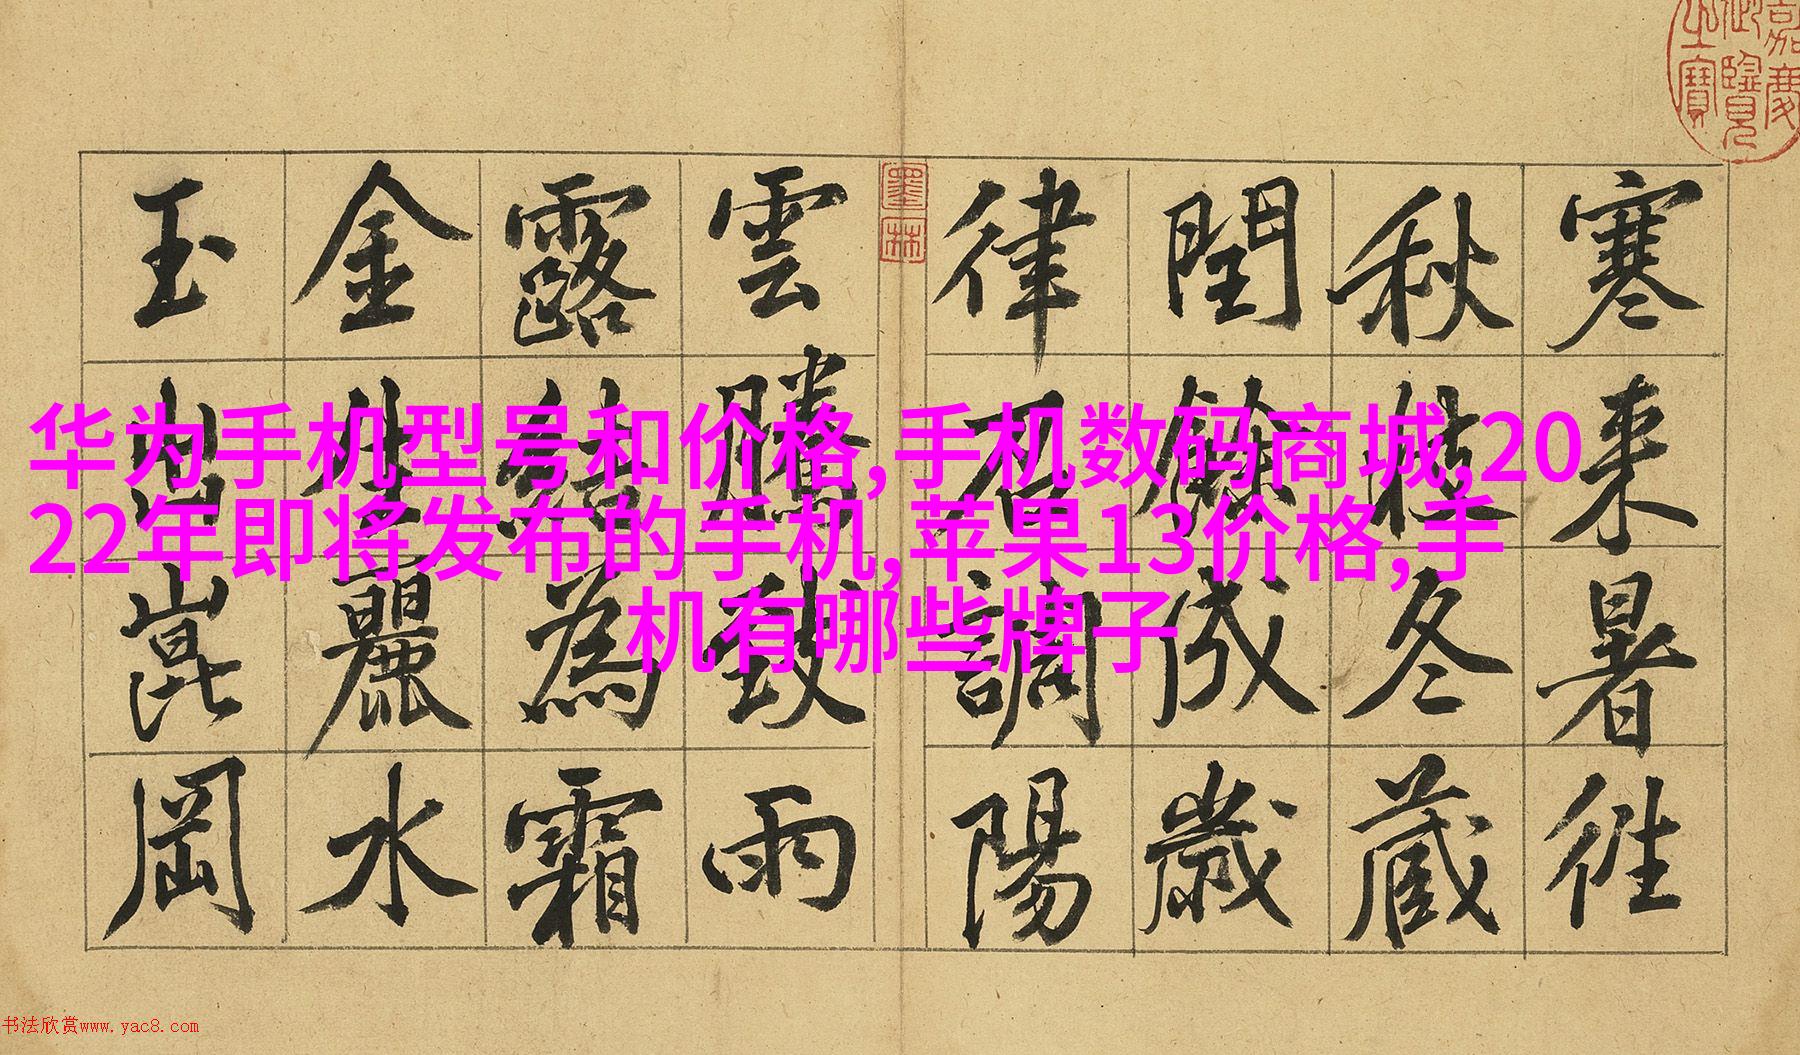 寒来暑往
秋收冬蔵
閏餘成歳
律吕調陽
雲騰致雨
露結為霜
金生麗水
玉出崑岡
华为手机型号和价格,手机数码商城,20
22年即将发布的手机,苹果13价格,手
机有哪些牌子
嘉慶
御覽
之寶
墨林
书法欣赏www.yac8.com